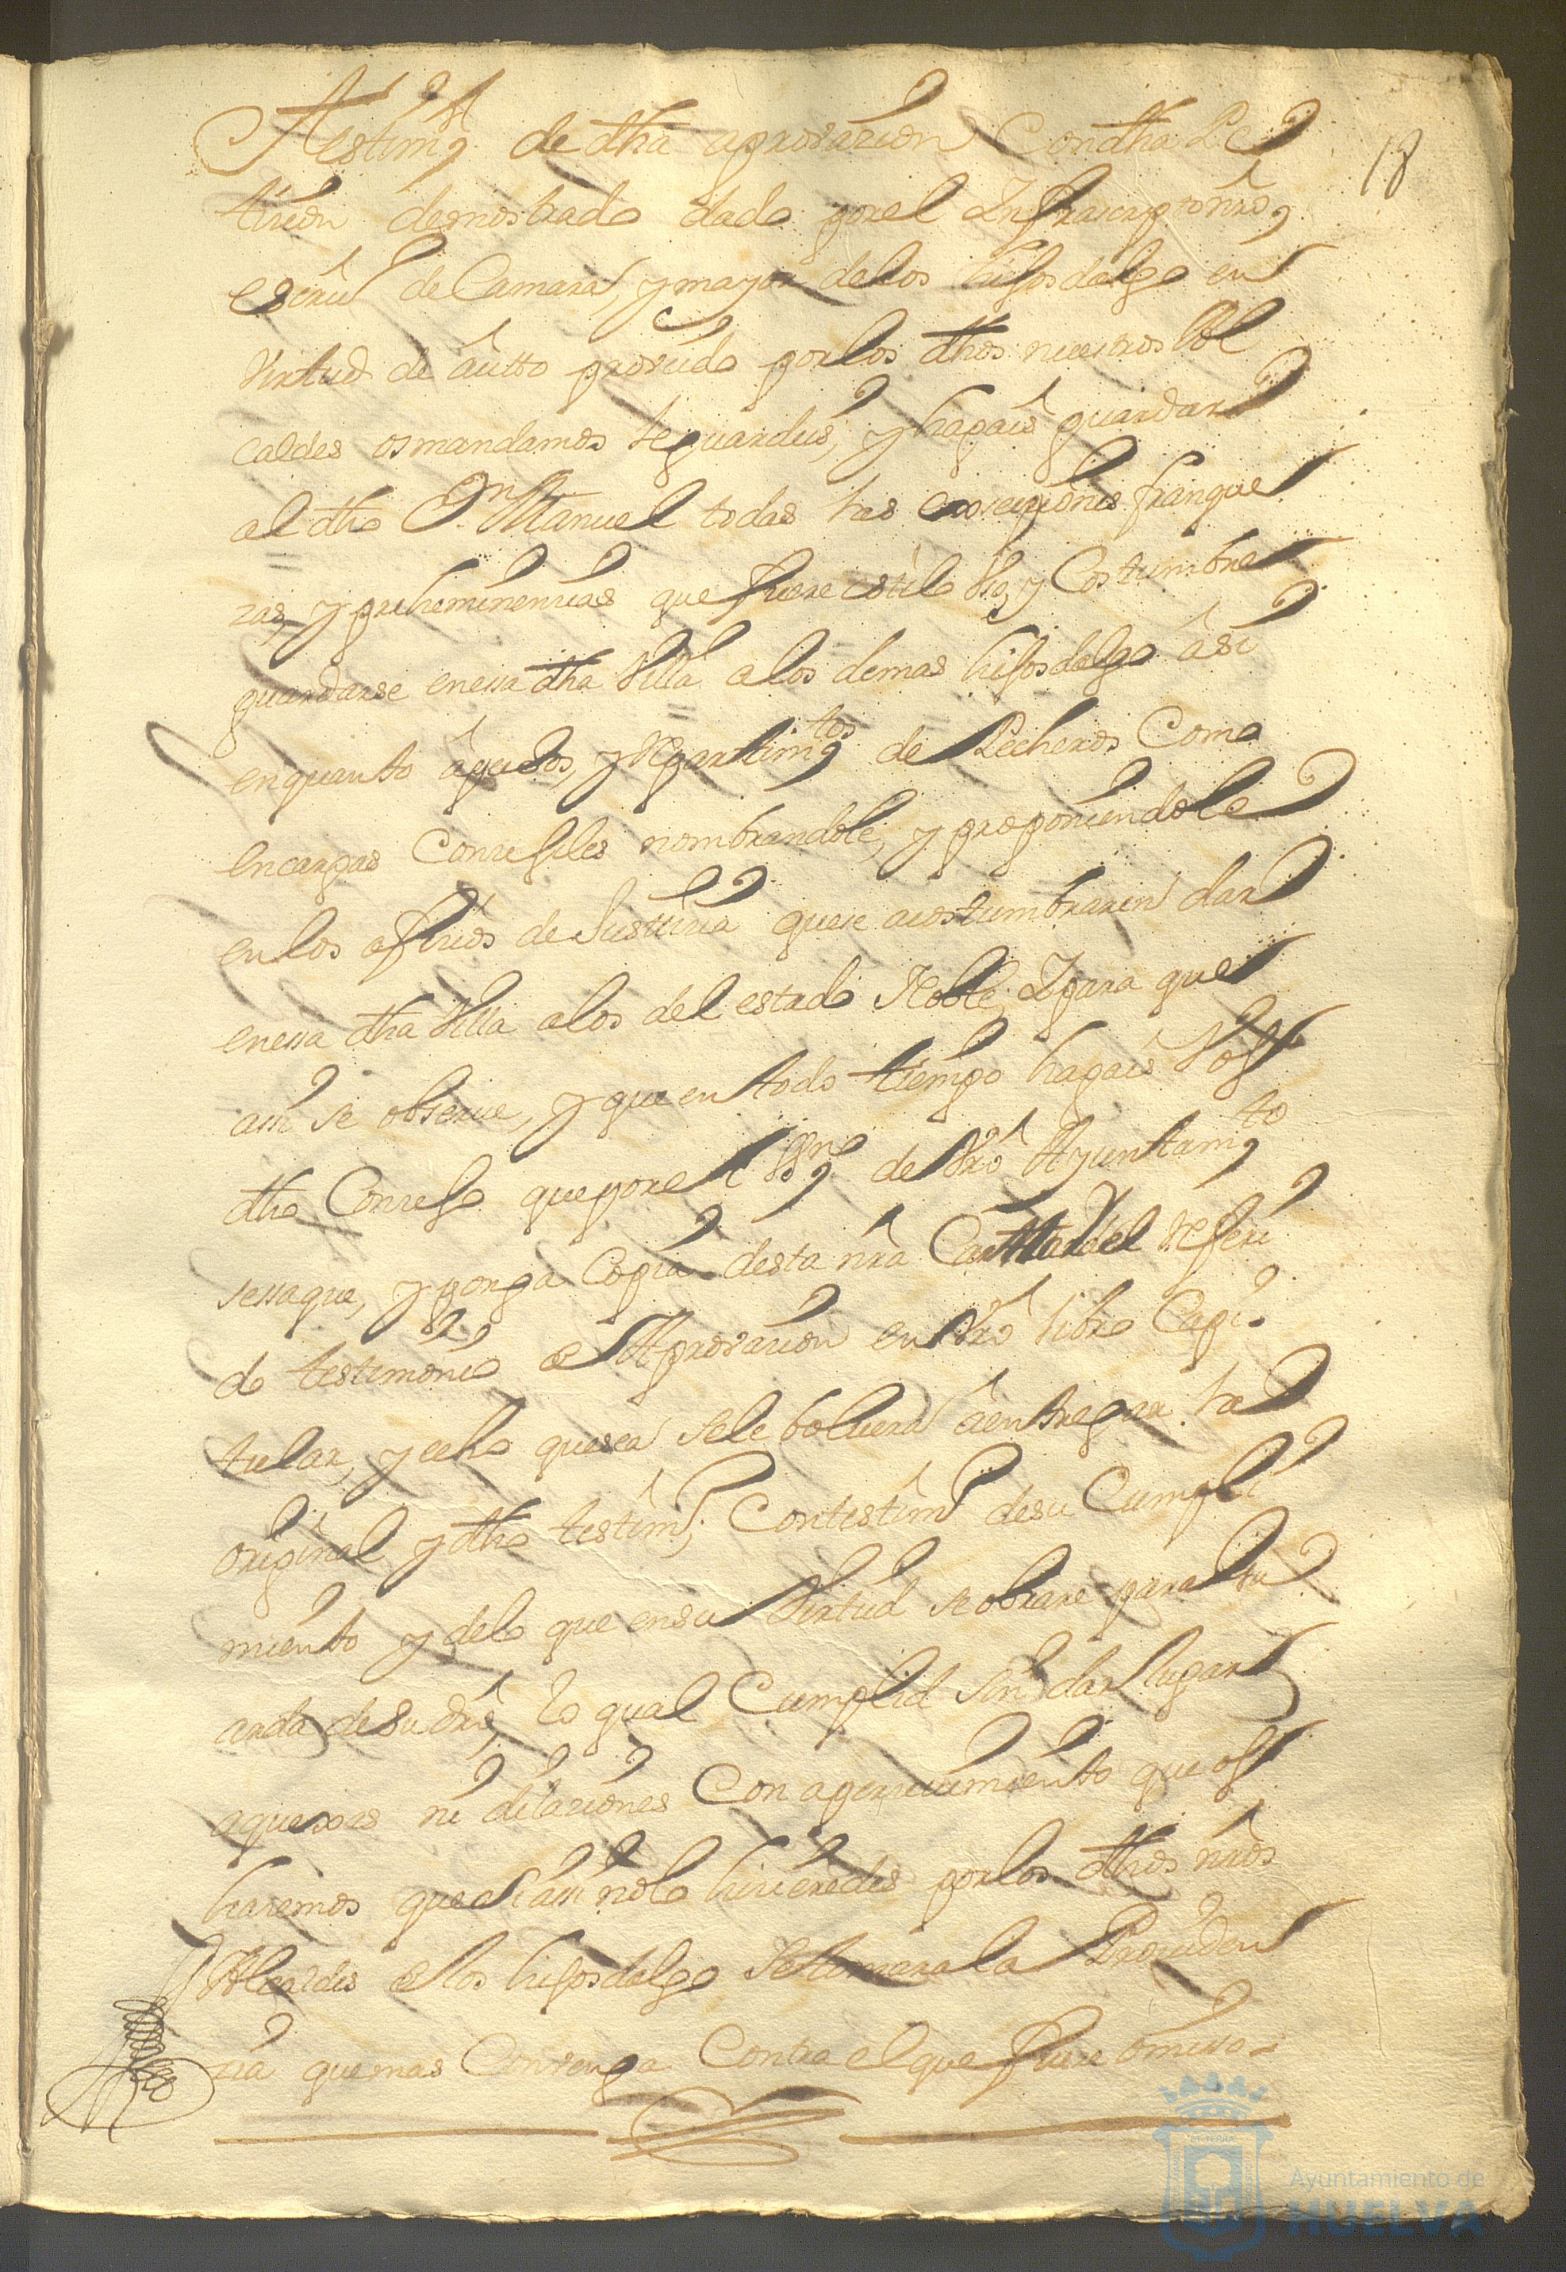 Testimº de dha aprovazion Con dha Pe
tizion demostrado dado por el Infrascripto nrô
escrivº de Camara, y mayor de los hijosdalgo en
virtud de autto proveido por los dhos nuestros Al
caldes os mandamos le guardeis, y hagais guardar
al dho Dn Manuel todas las exsempziones franque
zas, y preheminenzias que fuere estilo Vso, y Costumbre
guardarse en essa dha Villa a los demas hijosdalgo asi
en quanto a pechos, y repartimtos de Pecheros Como
en cargas Conzejiles nombrandole, y proponiendole
en los ofizios de Justizia que se acostumbraren dar
en essa dha Villa a los del estado Noble, Y para que
assi se observe, y que en todo tiempo hagais Vos
dho Conzejo que por el Essno de Vrô Ayuntamto
se saque, y ponga Copia desta nrâ Cartta del referi
do testimonio de Aprovazion en Vrô libro Capi
tular, y echo que sea se le bolvera a entregar la
original y dho testimº, Con testimº de su Cumpli
miento y de lo que en su Virtud se obrare para la Gu
arda de su drô, lo qual Cumplid sin dar lugar
a quexas ni dilaziones Con aperzevimiento que os
haremos que si assi no lo hizieredes por los dhos nrôs
Alcaldes de los hijosdalgo se tomara la Providen
zia que mas Convenga Contra el que fuere omisso
18
Ayuntamiento de
HUELVA